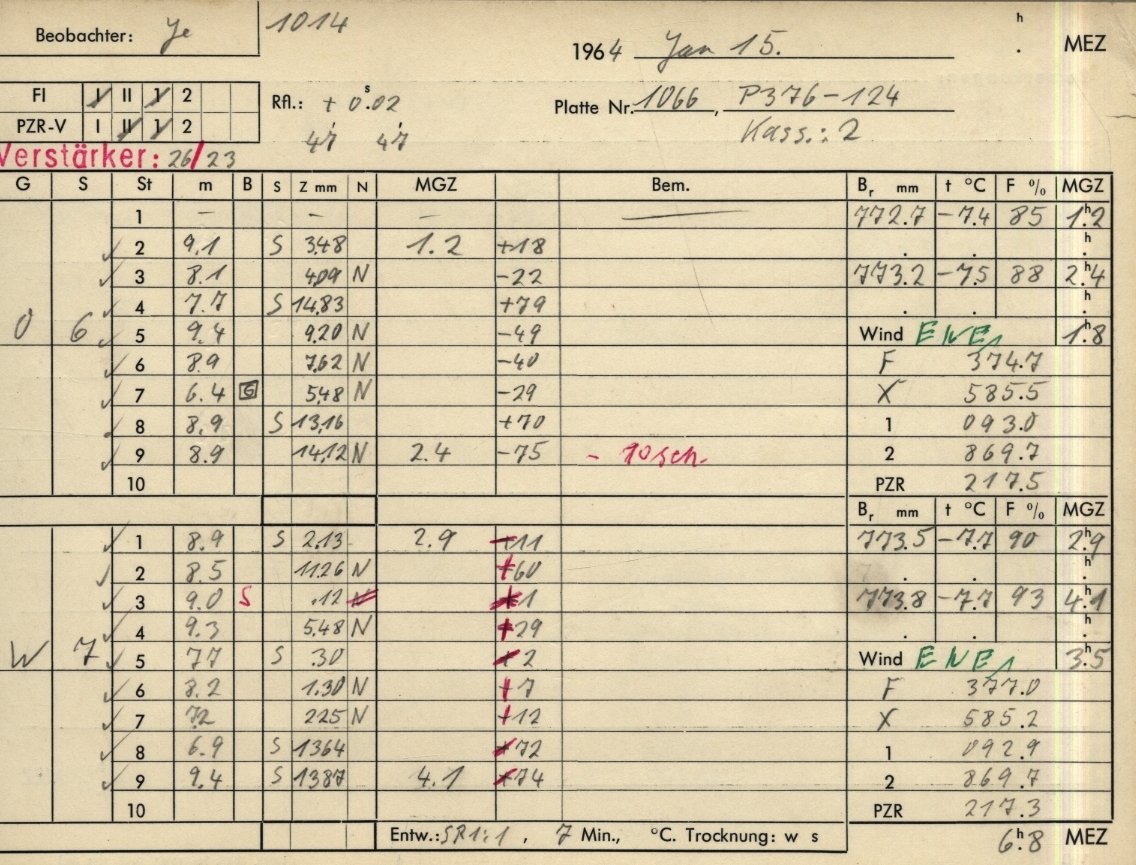 Beobachter: Je 1014 h . MEZ
1964 Jan 15.
FI I II 1 2 Rfl.: + 0.s02 Platte Nr. 1066, P376-124
PZR-V I II 1 2 47 47 Kass.: 2
Verstärker: 26/23
G S St m B S Z mm N MGZ Bem. Br mm t °C F % MGZ
1 – – – — 772.7 -7.4 85 1h.2
2 9.1 S 3.48 1.2 +18 . . h.
3 8.1 4.09 N -22 773.2 -7.5 88 2h.4
4 7.7 S 14.83 +79 . . h.
O 6 5 9.4 9.20 N -49 Wind ENE1 1h.8
6 8.9 7.62 N -40 F 374.7
7 6.4 G 5.48 N -29 X 585.5
8 8.9 S 13.16 +70 1 093.0
9 8.9 14.12 N 2.4 -75 - 10 sch. 2 869.7
10 PZR 217.5
Br mm t °C F % MGZ
1 8.9 S 2.13 2.9 11 773.5 -7.7 90 2h.9
2 8.5 11.26 N +60 . . h.
3 9.0 S .12 N 1 773.8 -7.7 93 4h.1
4 9.3 5.48 N +29 . . h.
W 7 5 7.7 S .30 2 Wind ENE1 3h.5
6 8.2 1.30 N +7 F 377.0
7 7.2 2.25 N +12 X 585.2
8 6.9 S 13.64 72 1 092.9
9 9.4 S 13.87 4.1 74 2 869.7
10 PZR 217.3
Entw.: SR1:1, 7 Min., °C. Trocknung: w s 6h.8 MEZ